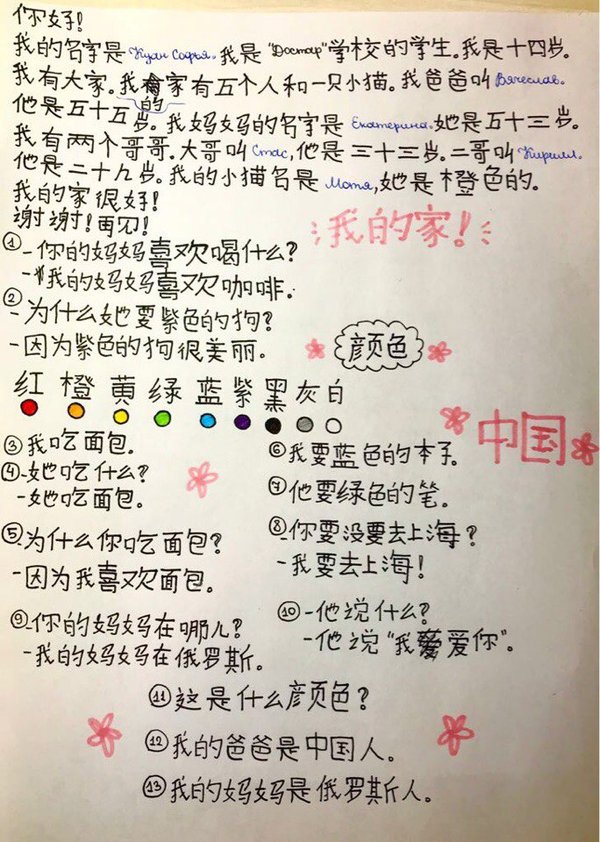 你好!
我的名字是 Куан Софья. 我是 "Достар" 学校的学生. 我是十四岁.
我有大家. 我的家有五个人和一只小猫. 我爸爸叫 Вячеслав.
他是五十五岁. 我妈妈的名字是 Екатерина. 她是五十三岁.
我有两个哥哥. 大哥叫 Стас, 他是三十三岁. 二哥叫 Кирилл.
他是二十九岁. 我的小猫名是 Мотя, 她是橙色的.
我的家很好!
谢谢! 再见!
我的家!
① - 你的妈妈喜欢喝什么?
- 我的妈妈喜欢咖啡.
② - 为什么她要紫色的狗?
- 因为紫色的狗很美丽.
颜色
红 橙 黄 绿 蓝 紫 黑 灰 白
中国
③ 我吃面包.
④ - 她吃什么?
- 她吃面包.
⑤ - 为什么你吃面包?
- 因为我喜欢面包.
⑥ 我要蓝色的本子.
⑦ 他要绿色的笔.
⑧ 你要没要去上海?
- 我要去上海!
⑨ - 你的妈妈在哪儿?
- 我的妈妈在俄罗斯.
⑩ - 他说什么?
- 他说 "我爱你".
⑪ 这是什么颜色?
⑫ 我的爸爸是中国人.
⑬ 我的妈妈是俄罗斯人.